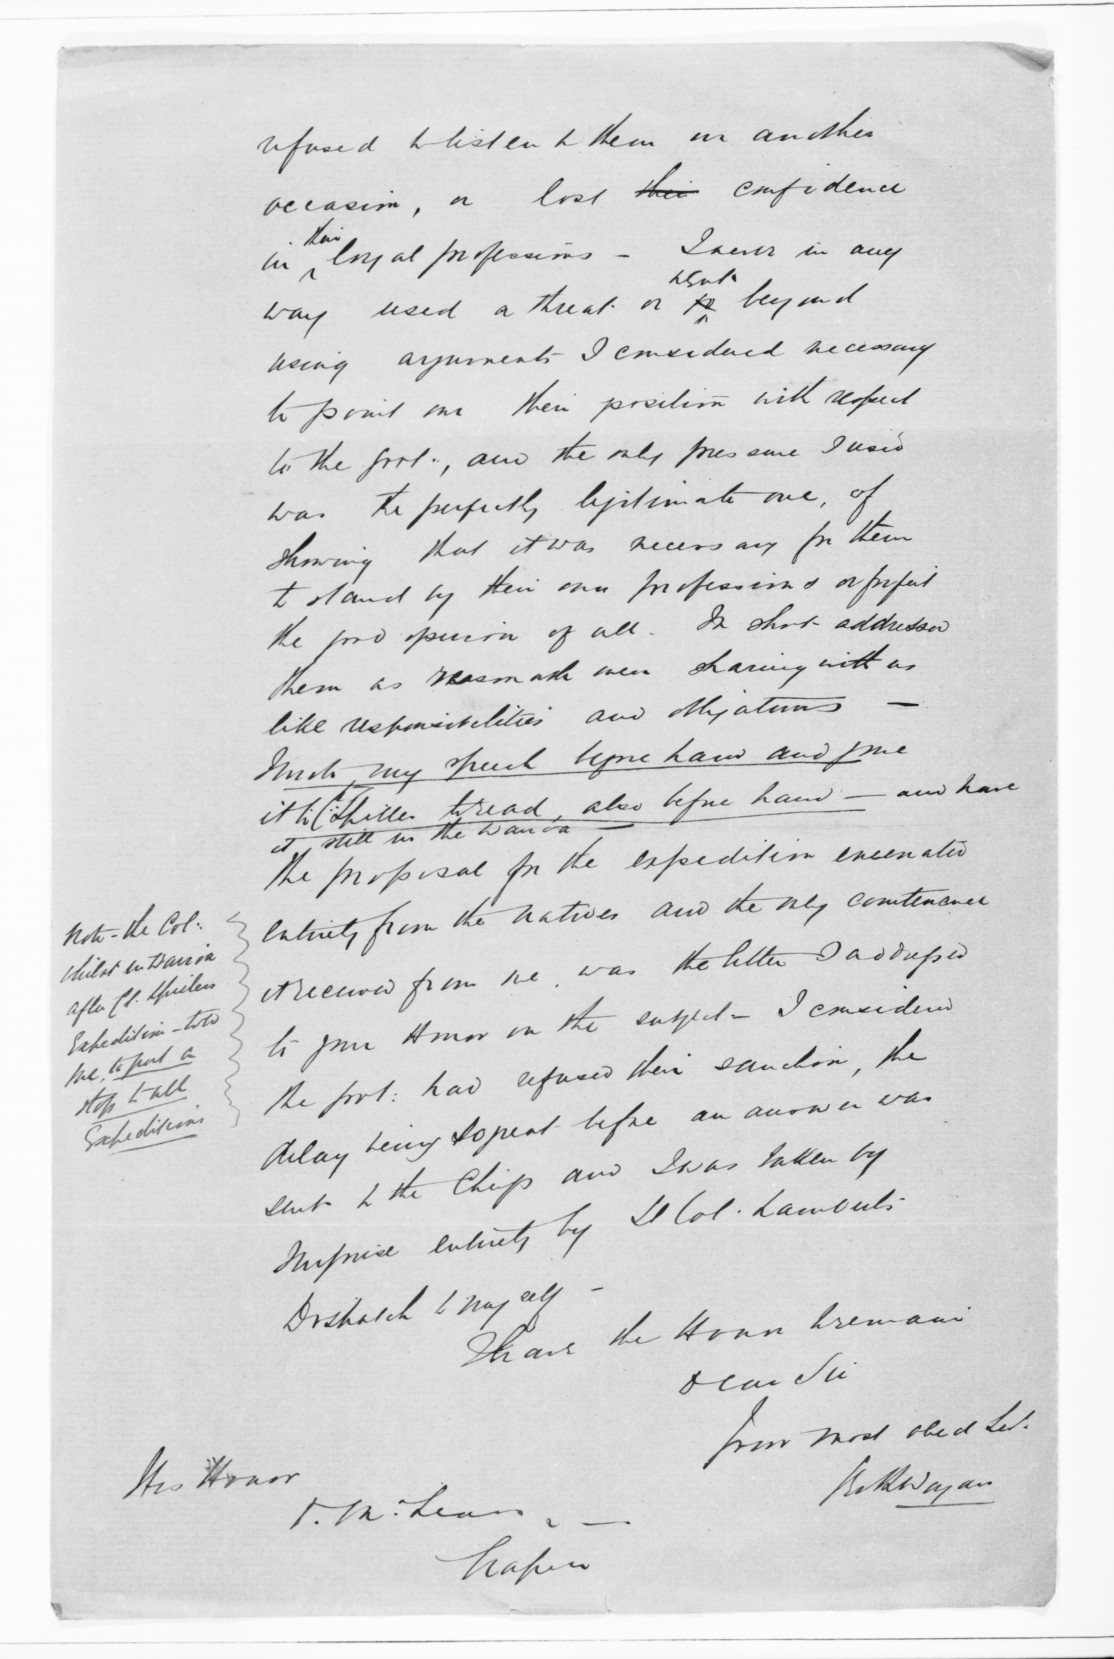 refused to listen to them on another
occasion, or lost their confidence
in their loyal professions - I never in any
way used a threat or to went beyond
using arguments I considered necessary
to point out their position with respect
to the Govt:, and the only pressure I used
was the perfectly legitimate one, of
showing that it was necessary for them
to stand by their own professions or forfeit
the good opinion of all. In short addressed
them as reasonable men sharing with us
like responsibilities and obligations -
my speech before hand and gave
it to Cpt: Spiller to read, also before hand - and have
it still in the Wairoa -
The proposal for the expedition emenated
entirely from the Natives and the only countenance
it received from me, was the letter I addressed
to your Honor on the subject - I considered
the Govt: had refused their sanction, the
delay being so great before an answer was
sent to the Chiefs and I was taken by
surprise entirely by Lt Col. Lamberts
Dispatch to myself -
I have the Honor to remain
Dear Sir
Your most obed Svt.
His Honor
D. McLean, -
Napier
Note - the Col:
whilst in Wairoa
after Cpt. Spillers
Expedition - told
me, to put a
stop to all
Expeditions